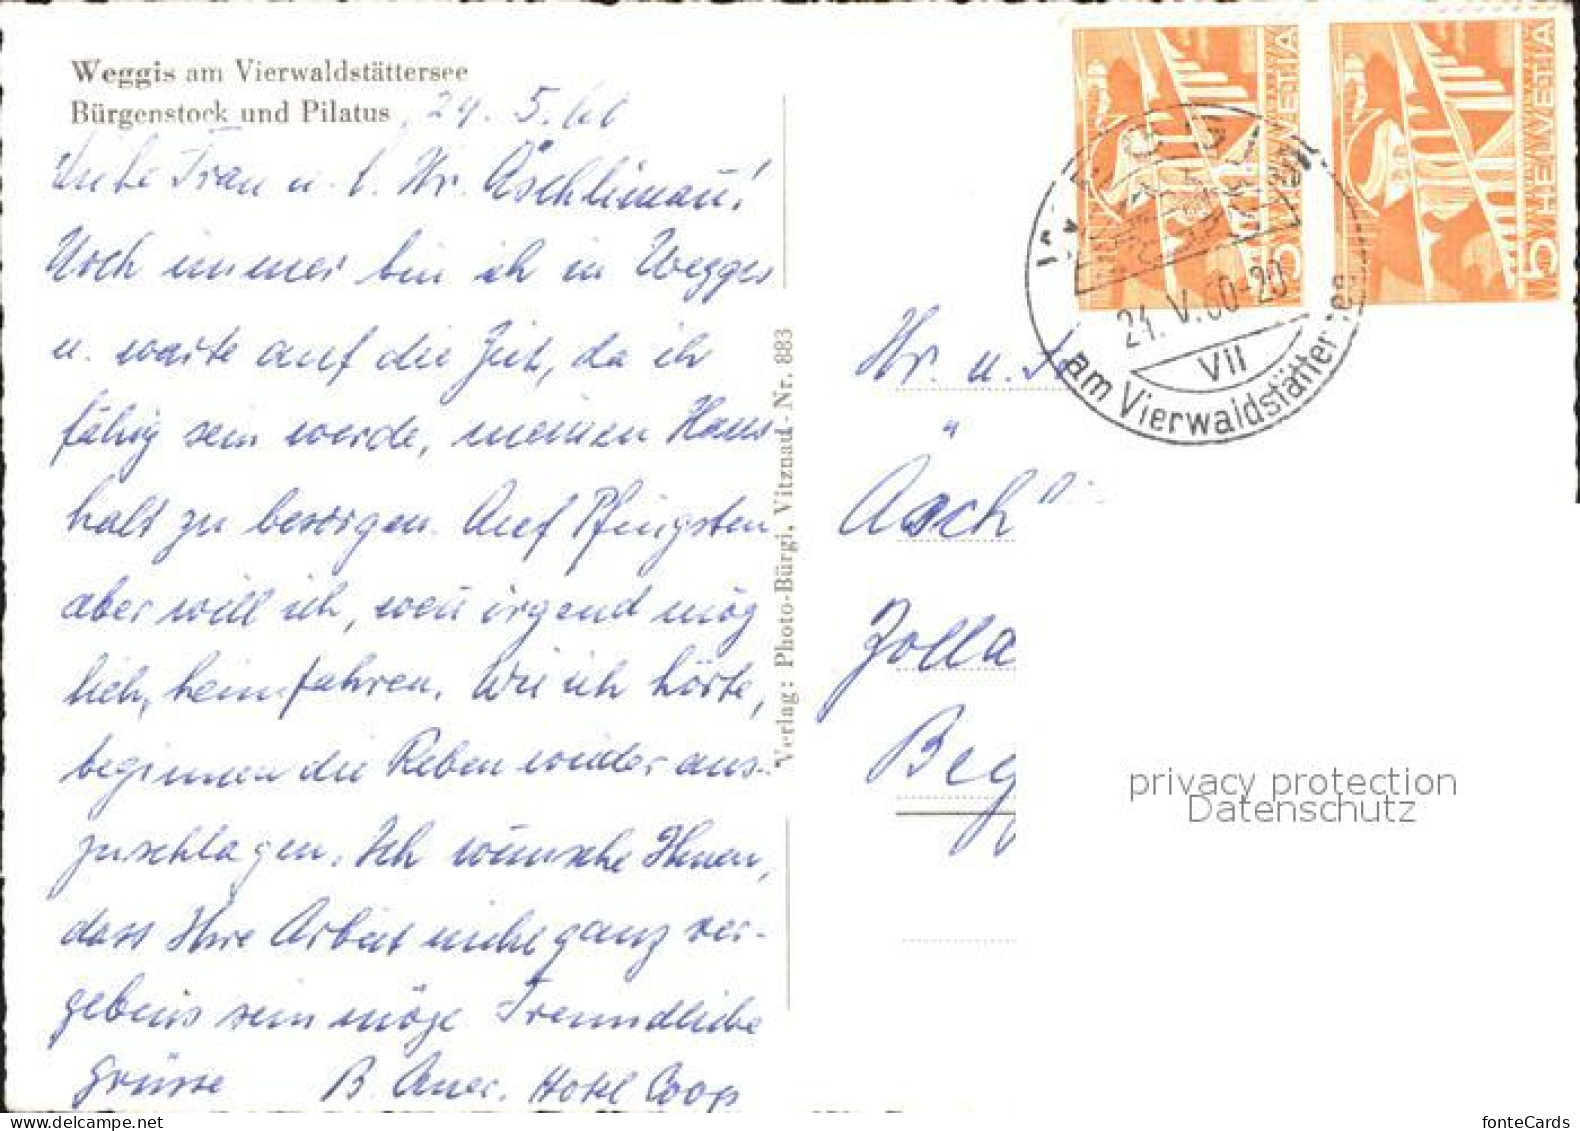 Weggis am Vierwaldstättersee
Bürgenstock und Pilatus, 24. 5. 60
Liebe Frau u. l. Hr. Äschlimañ!
Noch immer bin ich in Wegges
u. warte auf die Zeit, da ich
fähig sein werde, meinen Haus
halt zu besorgen. Auf Pfingsten
aber will ich, weñ irgend mög
lich, heimfahren. Wie ich hörte,
beginnen die Reben wieder aus-
zuschlagen. Ich wünsche Ihnen,
dass Ihre Arbeit nicht ganz ver-
gebens sein möge. Freundliche
Grüsse B. Auer. Hotel Coop
Verlag: Photo-Bürgi, Vitznau - Nr. 883
HELVETIA
5
HELVETIA
5
24. V. 60-20
VII
am Vierwaldstättersee
Hr. u.
Äsch
Zolla
Beg
privacy protection
Datenschutz
fonteCards